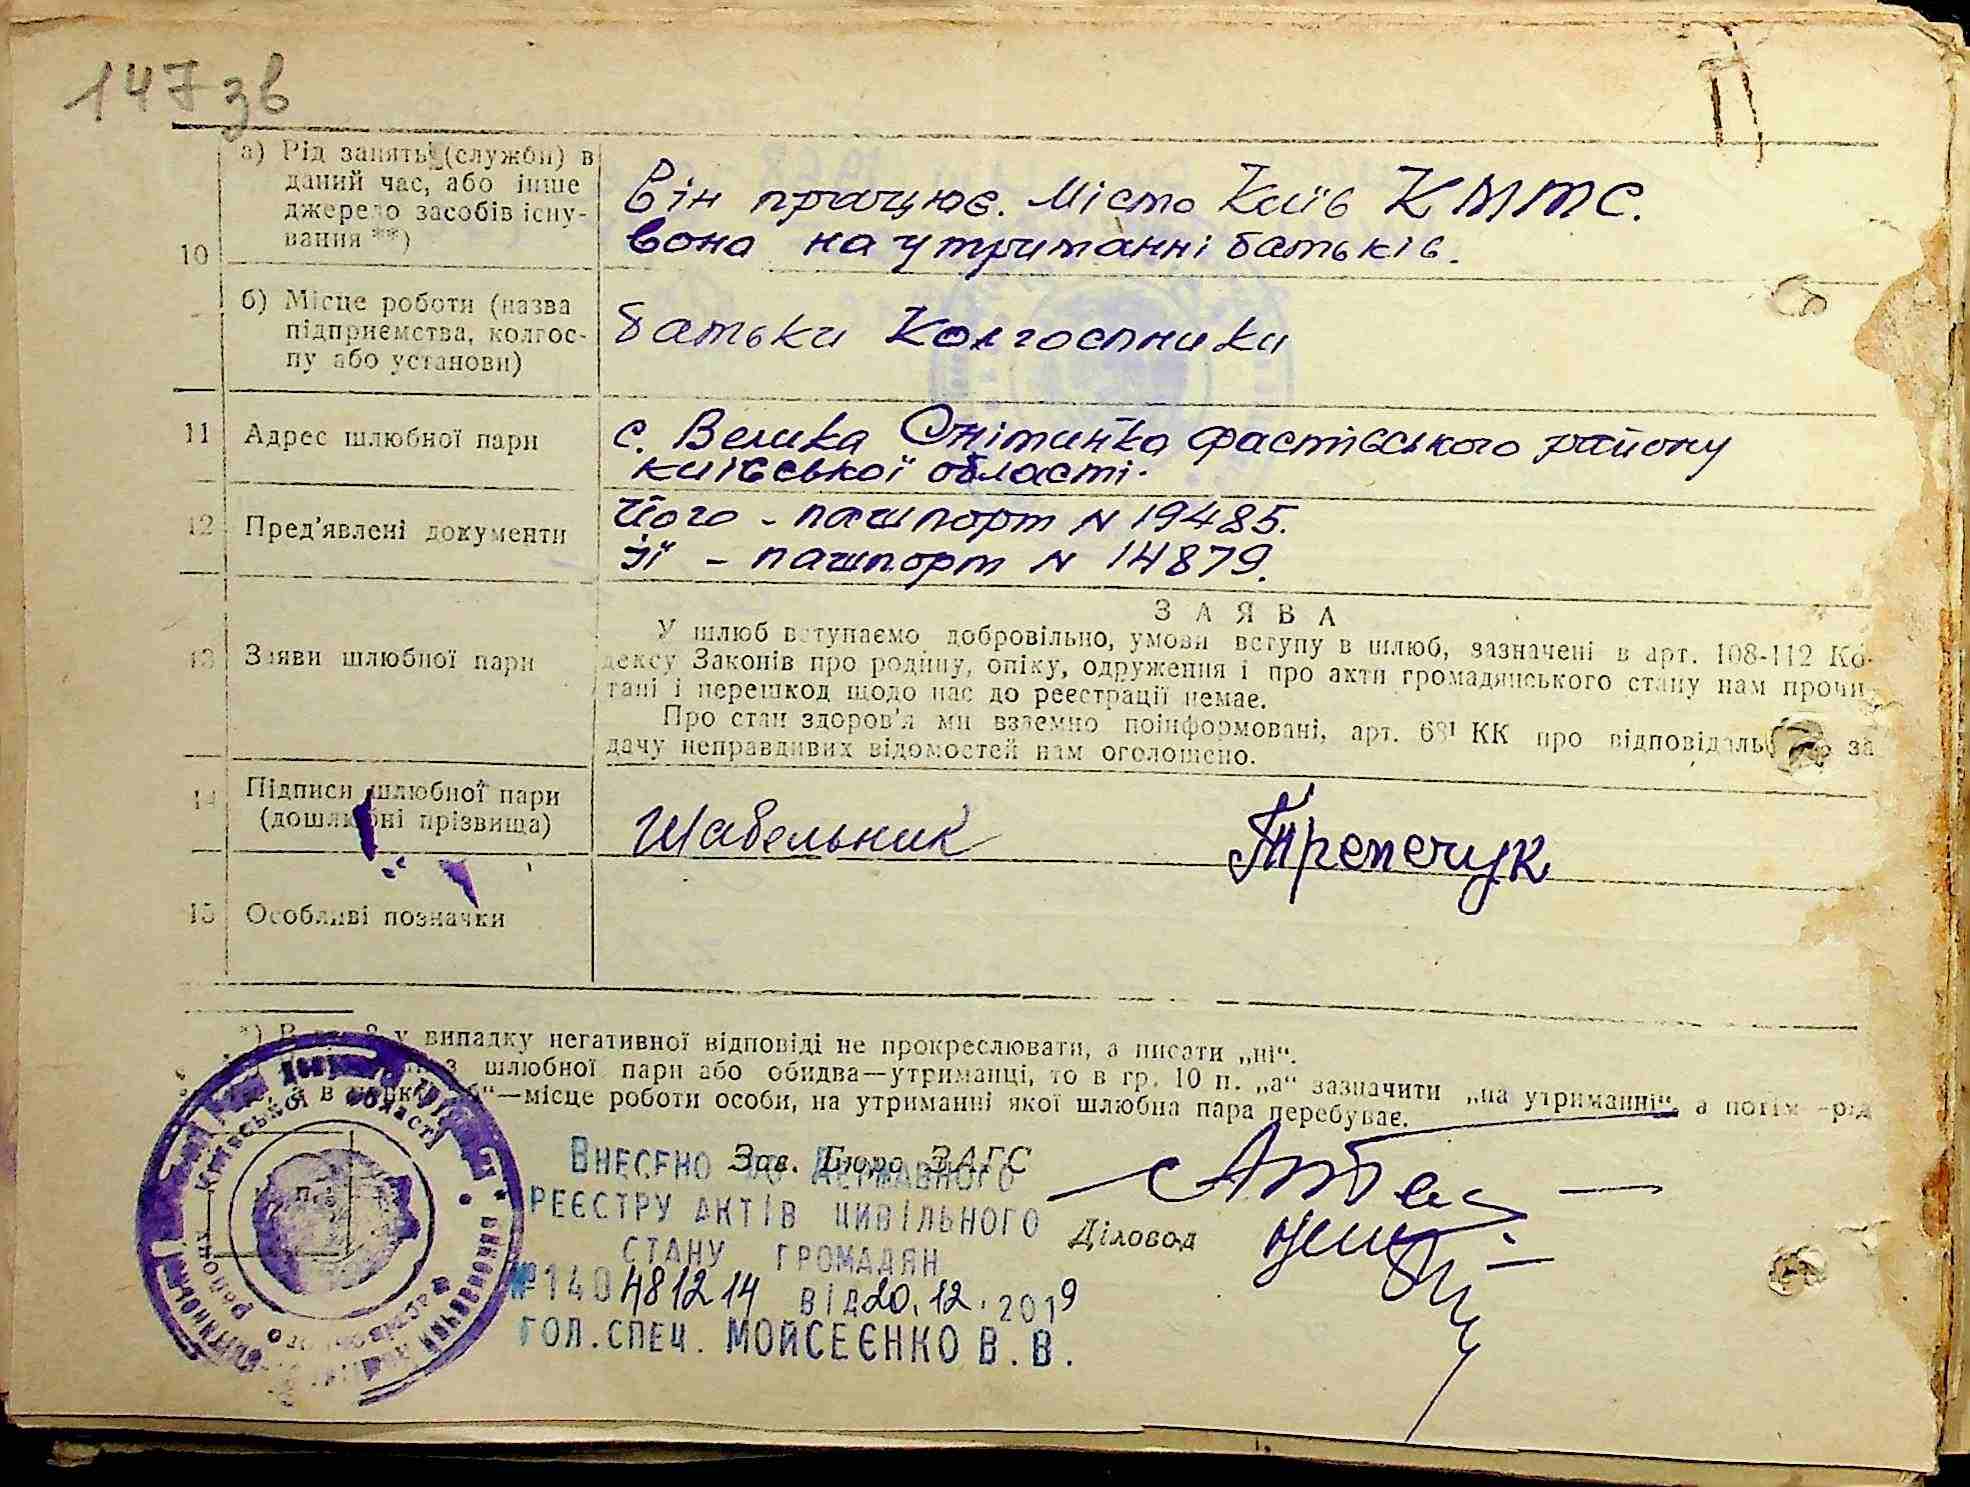 147 зв
10
а) Рід занять (служби) в
даний час, або інше
джерело засобів існу-
вання **)
Він працює. Місто Київ КММС.
Вона на утриманні батьків.
б) Місце роботи (назва
підприємства, колгос-
пу або установи)
батьки колгоспники
11
Адрес шлюбної пари
с. Велика Снітинка Фастівського району
київської області.
12
Пред'явлені документи
Його - пашпорт N 19485.
Її - пашпорт N 14879.
13
Заяви шлюбної пари
ЗАЯВА
У шлюб вступаємо добровільно, умови вступу в шлюб, зазначені в арт. 108-112 Ко-
дексу Законів про родину, опіку, одруження і про акти громадянського стану нам прочи-
тані і перешкод щодо нас до реєстрації немає.
Про стан здоров'я ми взаємно поінформовані, арт. 68¹ КК про за
дачу неправдивих відомостей нам оголошено.
14
Підписи шлюбної пари
(дошлюбні прізвища)
Шабельник Трепечук
15
Особливі позначки
*) В у випадку негативної відповіді не прокреслювати, а писати „ні“.
з шлюбної пари або обидва—утриманці, то в гр. 10 п. „а“ зазначити „на утриманні“, а потім—рід
в „б“—місце роботи особи, на утриманні якої шлюбна пара перебуває.
Київської області
Зав. Бюро ЗАГС
Діловод
Внесено до Державного
реєстру актів цивільного
стану громадян
№ 140 481214 від 20.12.2019
Гол.спец. Мойсеєнко В.В.